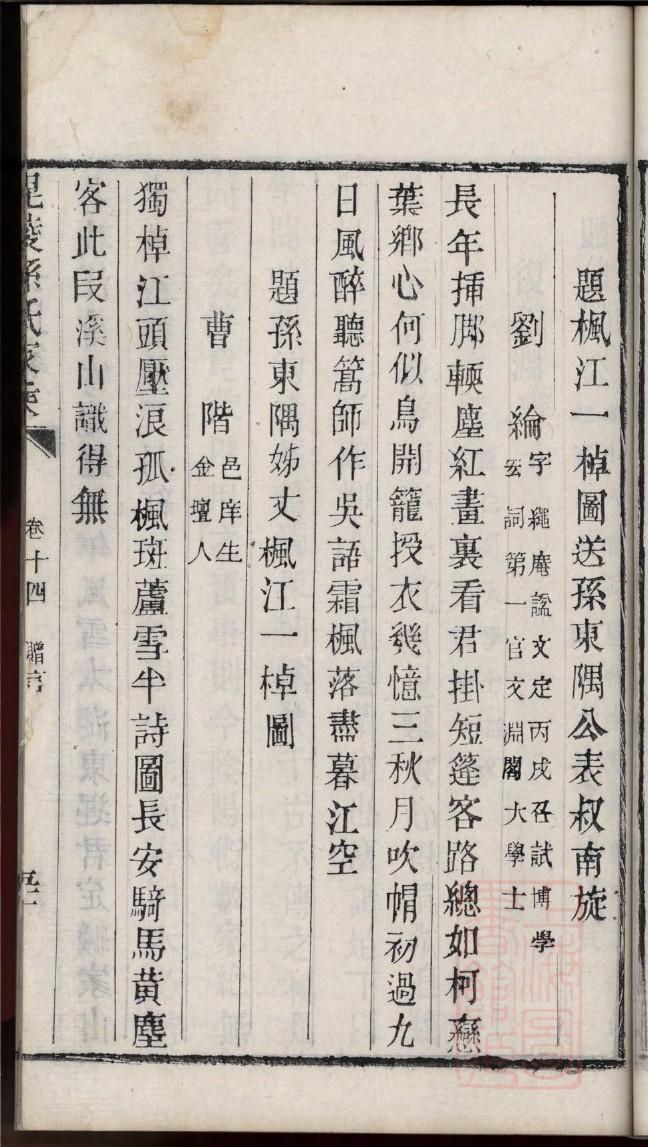 題楓江一棹圖送孫東隅公表叔南旋
劉綸字繩庵諡文定丙戌召試博學
宏詞第一官文淵閣大學士
長年挿脚輭塵紅畫裏看君掛短篷客路總如柯戀
葉鄉心何似鳥開籠授衣幾憶三秋月吹帽初過九
日風醉聽篙師作吳語霜楓落盡暮江空
題孫東隅姊丈楓江一棹圖
曹階邑庠生
金壇人
獨棹江頭壓浪孤楓斑蘆雪半詩圖長安騎馬黃塵
客此段溪山識得無
毘陵孫氏家乘
卷十四
贈言